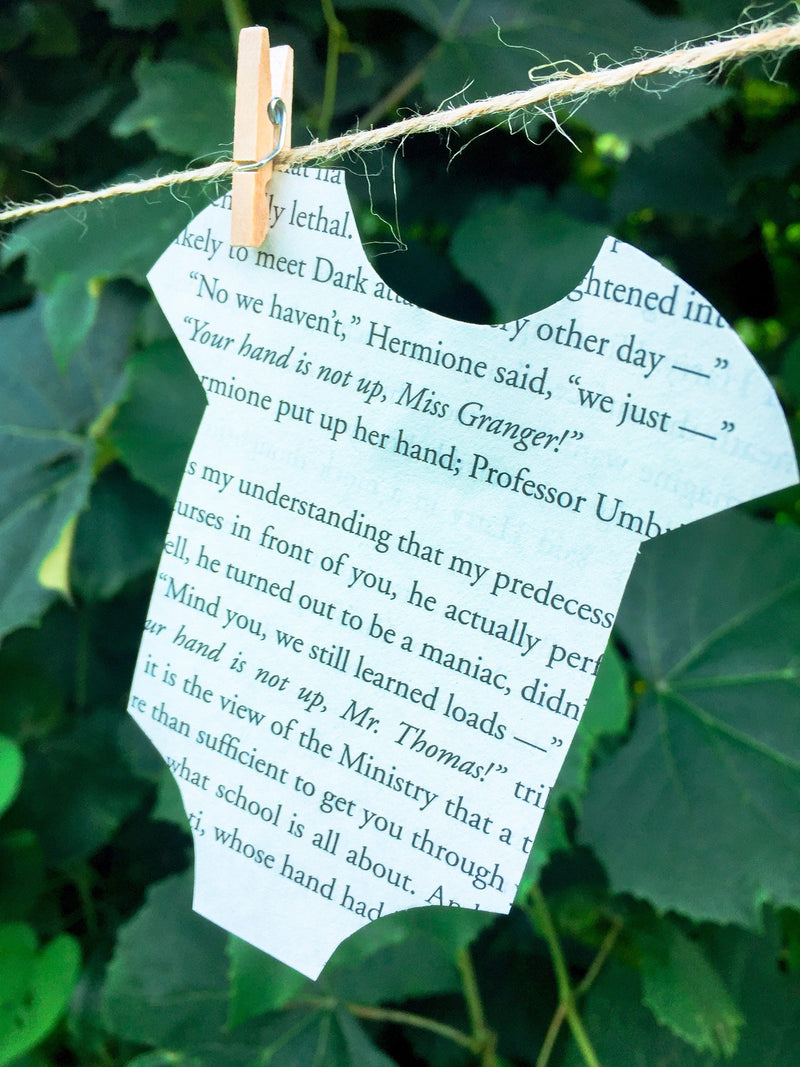 lly lethal.
to meet Dark other day —”
“No we haven’t,” Hermione said, “we just —”
“Your hand is not up, Miss Granger!”
rmione put up her hand; Professor Umb
s my understanding that my predecess
urses in front of you, he actually perf
ell, he turned out to be a maniac, didn’
“Mind you, we still learned loads —”
ur hand is not up, Mr. Thomas!” tril
it is the view of the Ministry that a t
re than sufficient to get you through
what school is all about. And
ti, whose hand had